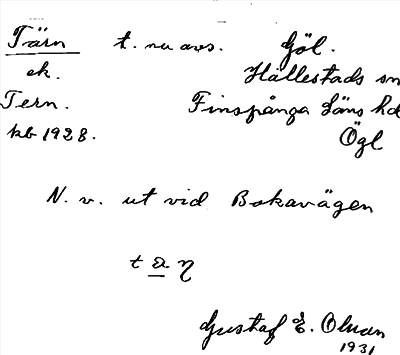 Tärn t. nu avs. Göl.
ek. Hällestads sn
Tern. Finspånga läns hd
kb 1928. Ögl
N. v. ut vid Bokavägen
t a η
Gustaf E. Olvan
1931